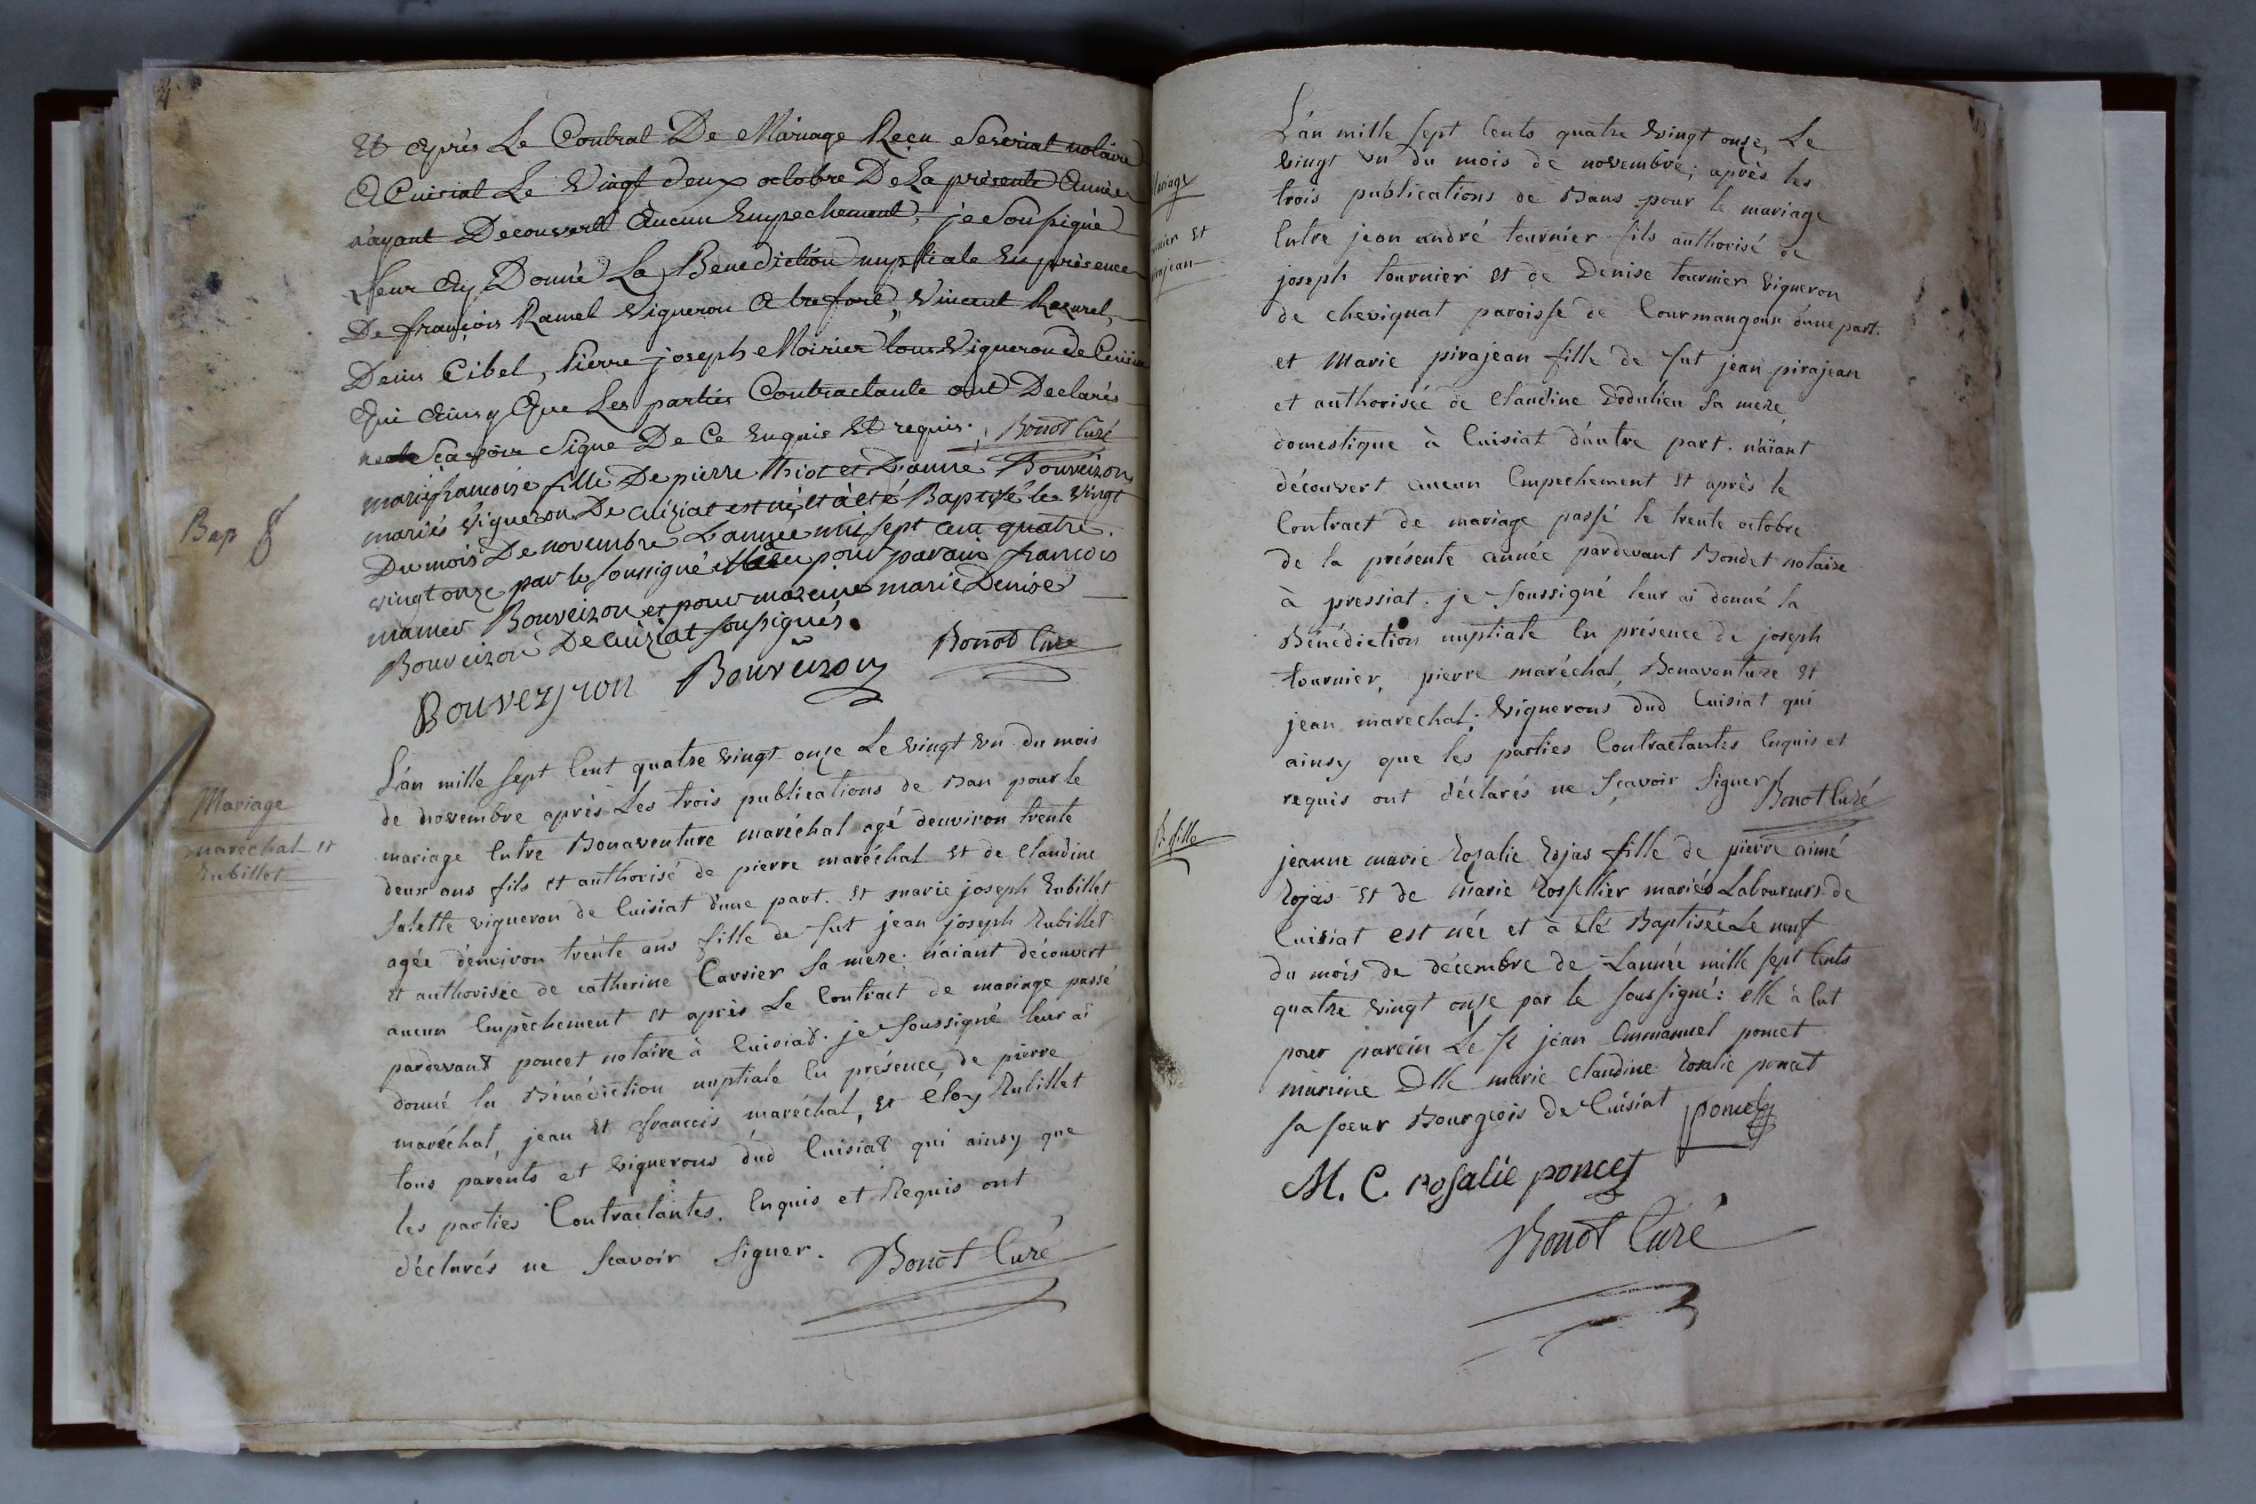 Et après Le Contrat De Mariage Reçu notaire
A Cuisiat Le Vingt deux octobre De La présente Année
n'ayant Decouvert Aucun Empechement, je Soussigné
Leur Ay Donné La Bénédiction nuptiale En présence
De françois Ramel Vigneron Vincent
Denis Cibel, Pierre joseph Moirier tous Vigneron de
Qui Ainsy Que Les parties Contractante ont Declarés
ne Scavoir Signe De Ce Enquis Et requis. Bonot Curé
Bap
marie francoise fille De pierre thiot et D'anne Bouveizon
mariés vigneron De cuiziat est né, et à été Baptisé le vingt
Du mois De novembre L'année mil sept cent quatre
vingt onze par le soussigné pour parain francois
mamer Bouveizon et pour mareine marie Denise
Bouveizon De cuiziat soussignés.
Bouveyron Bouveizon Bonot Curé
Mariage
maréchal et
Rubillet
L'an mille sept Cent quatre vingt onze Le vingt un du mois
de novembre après Les trois publications de Ban pour le
mariage Entre Bonaventure maréchal agé d'environ trente
deux ans fils et authorisé de pierre maréchal et de claudine
Salette vigneron de Cuisiat d'une part. et marie joseph Rubillet
agée d'environ trente ans fille de fut jean joseph Rubillet
et authorisée de catherine Carrier sa mère; n'aiant découvert
aucun Empèchement et après Le Contract de mariage passé
pardevant poncet notaire à Cuisiat. je soussigné leur ai
donné la Bénédiction nuptiale En présence de pierre
maréchal, jean et francois maréchal, et Eloy Rubillet
tous parents et vignerons dud Cuisiat qui ainsy que
les parties Contractantes. Enquis et Requis ont
déclarés ne scavoir signer. Bonot Curé
Mariage
et
L'an mille sept Cents quatre vingt onze, Le
vingt un du mois de novembre; après les
trois publications de Bans pour le mariage
Entre jean andré tournier fils authorisé de
joseph tournier et de Denise tournier vigneron
de chevignat paroisse de Courmangoux d'une part.
et Marie pirajean fille de fut jean pirajean
et authorisée de Claudine Dodulien sa mere
domestique à Cuisiat d'autre part. n'aïant
découvert aucun Empechement et après le
Contract de mariage passé le trente octobre
de la présente année pardevant Bondet notaire
à pressiat. je soussigné leur ai donné la
Bénédiction nuptiale En présence de joseph
tournier, pierre maréchal, Bonaventure et
jean marechal. vignerons dud Cuisiat qui
ainsy que les parties Contractantes Enquis et
requis ont déclarés ne sçavoir signer Bonot Curé
B. fille
jeanne marie Rosalie Rojas fille de pierre aimé
Rojas et de Marie Rossellier mariés Laboureurs de
Cuisiat est née et à été Baptisée Le neuf
du mois de décembre de L'année mille sept Cents
quatre vingt onse par le soussigné: elle à Eut
pour parein Le sr jean Emmanuel poncet
mareine Dlle marie Claudine Rosalie poncet
sa soeur Bourgeois de Cuisiat poncet
M. C. rosalie poncet
Bonot Curé